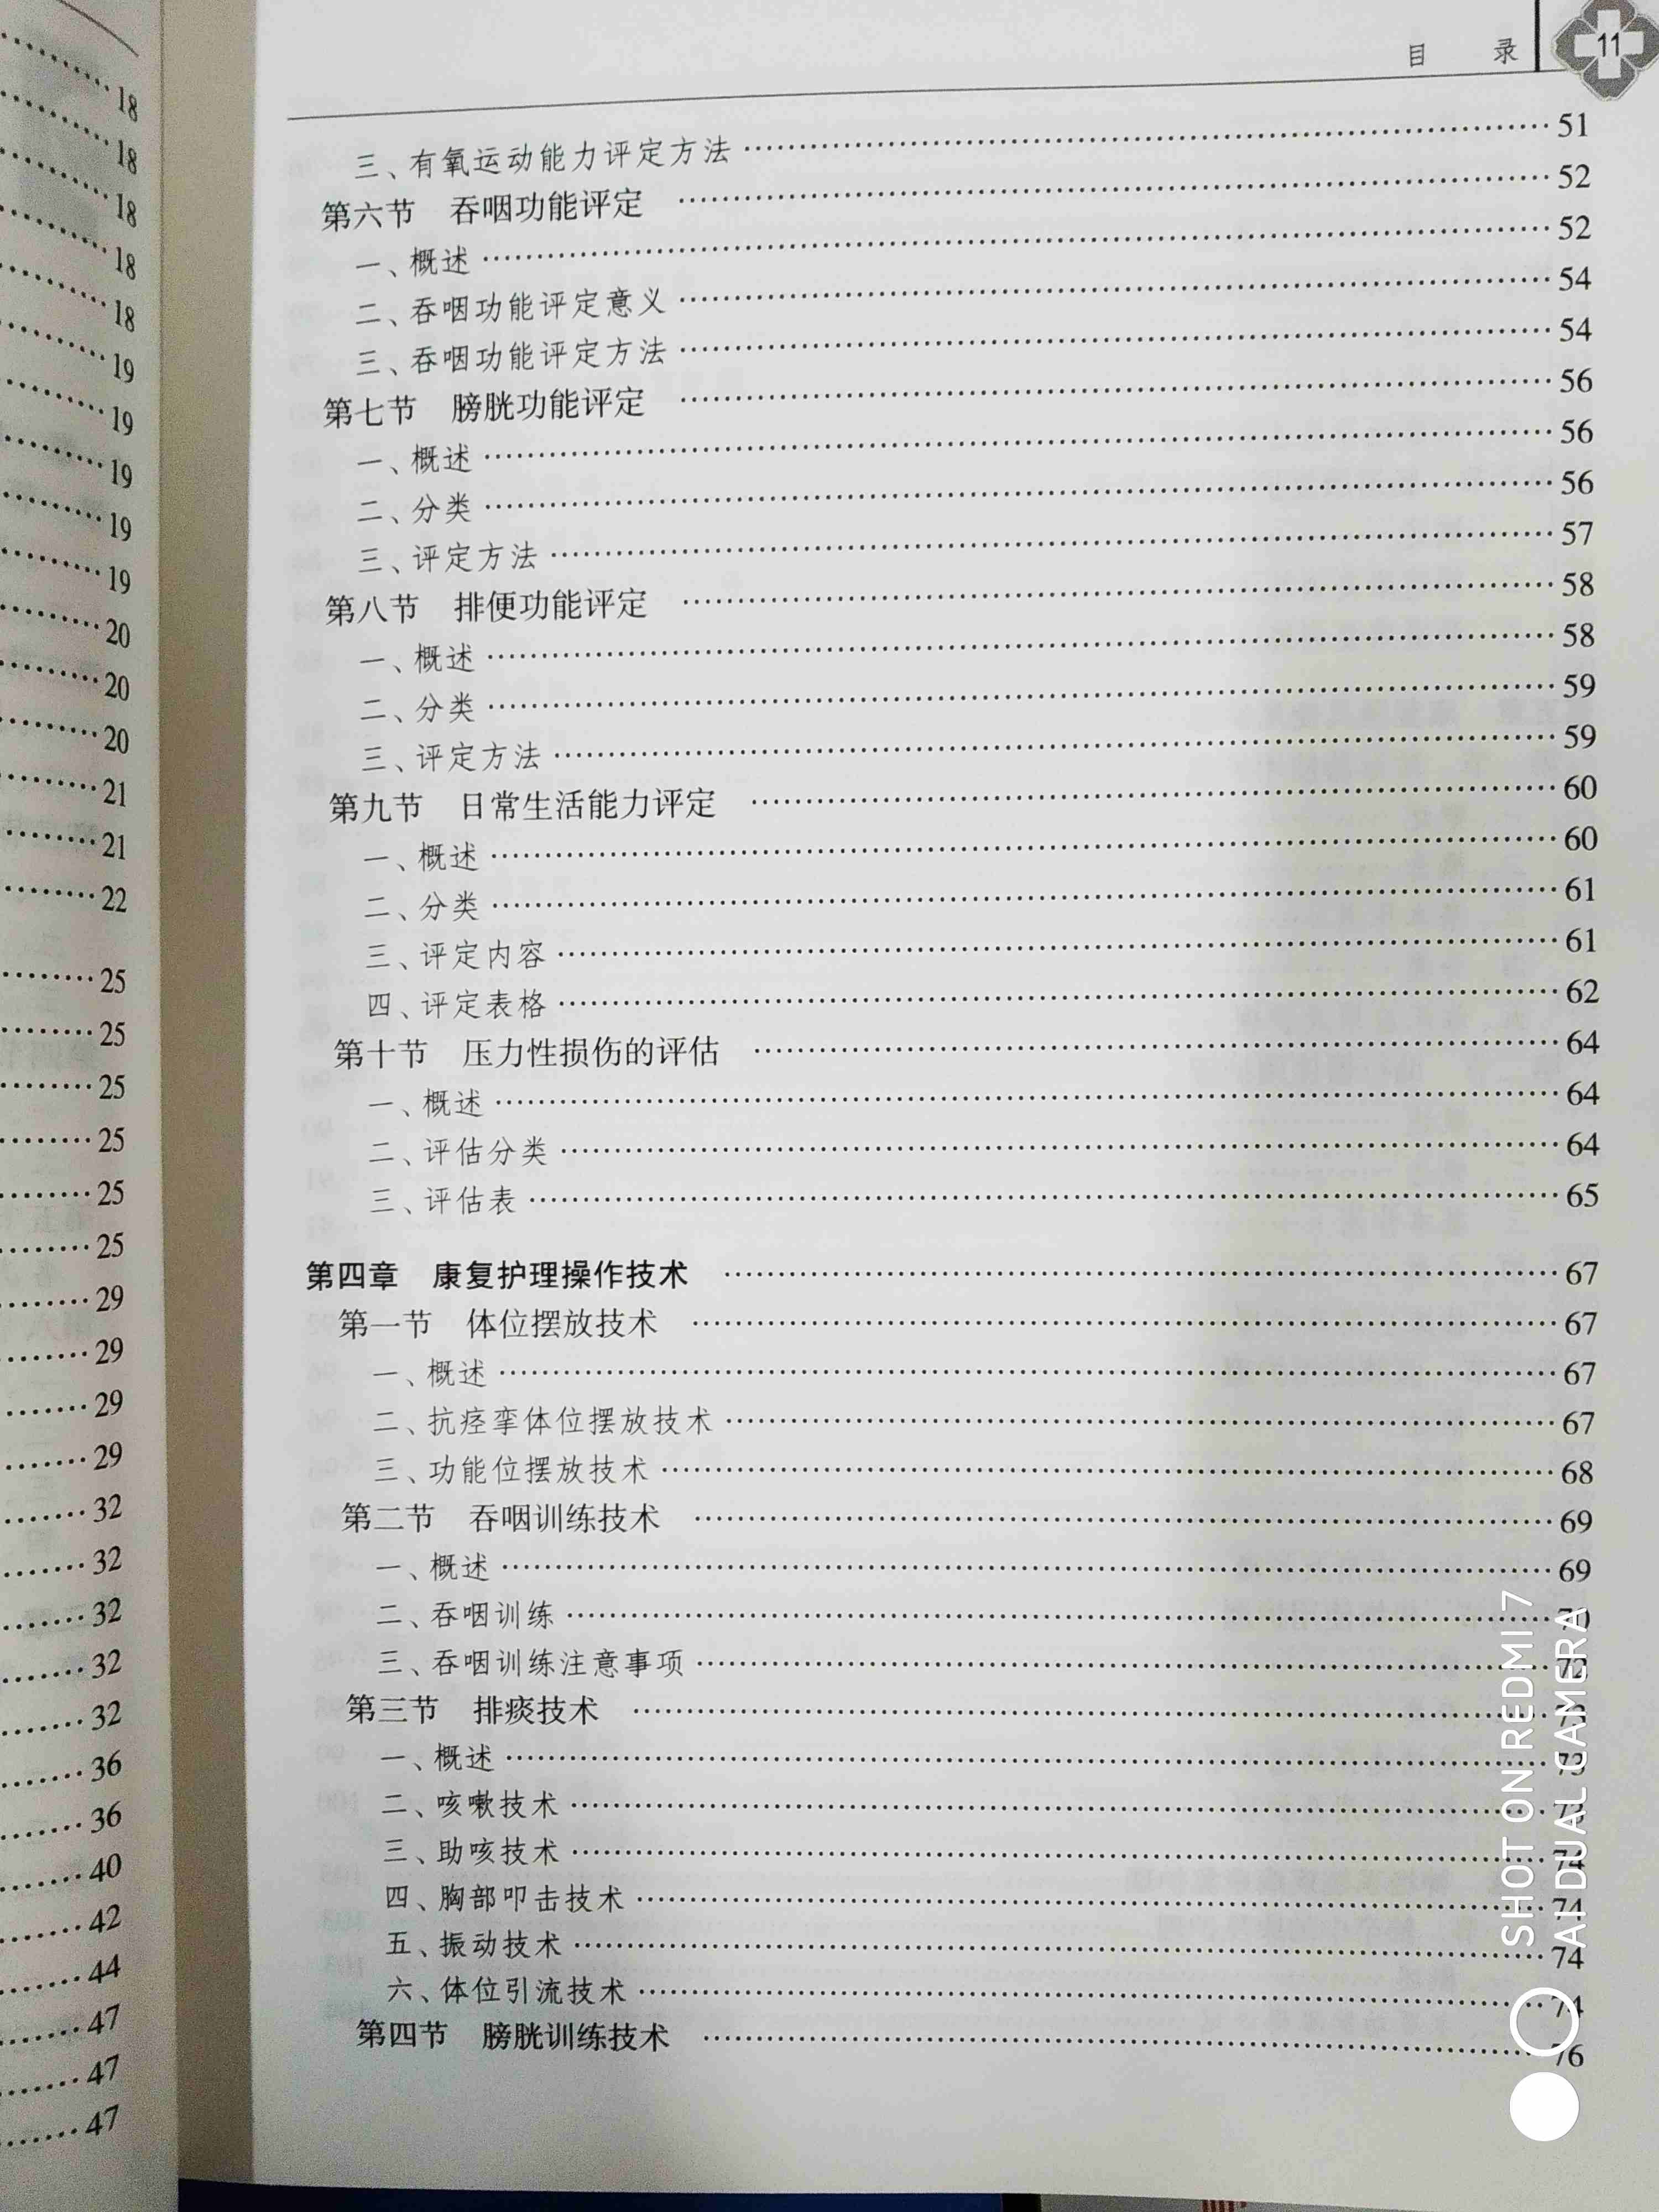 18
18
18
18
18
19
19
19
19
19
20
20
20
21
21
22
25
25
25
25
25
25
29
29
29
29
32
32
32
32
32
36
36
40
42
44
47
47
47
目 录 11
三、有氧运动能力评定方法 51
第六节 吞咽功能评定 52
一、概述 52
二、吞咽功能评定意义 54
三、吞咽功能评定方法 54
第七节 膀胱功能评定 56
一、概述 56
二、分类 56
三、评定方法 57
第八节 排便功能评定 58
一、概述 58
二、分类 59
三、评定方法 59
第九节 日常生活能力评定 60
一、概述 60
二、分类 61
三、评定内容 61
四、评定表格 62
第十节 压力性损伤的评估 64
一、概述 64
二、评估分类 64
三、评估表 65
第四章 康复护理操作技术 67
第一节 体位摆放技术 67
一、概述 67
二、抗痉挛体位摆放技术 67
三、功能位摆放技术 68
第二节 吞咽训练技术 69
一、概述 69
二、吞咽训练 70
三、吞咽训练注意事项 72
第三节 排痰技术 73
一、概述 73
二、咳嗽技术 73
三、助咳技术 74
四、胸部叩击技术 74
五、振动技术 74
六、体位引流技术 74
第四节 膀胱训练技术 76
SHOT ON REDMI 7
AI DUAL CAMERA